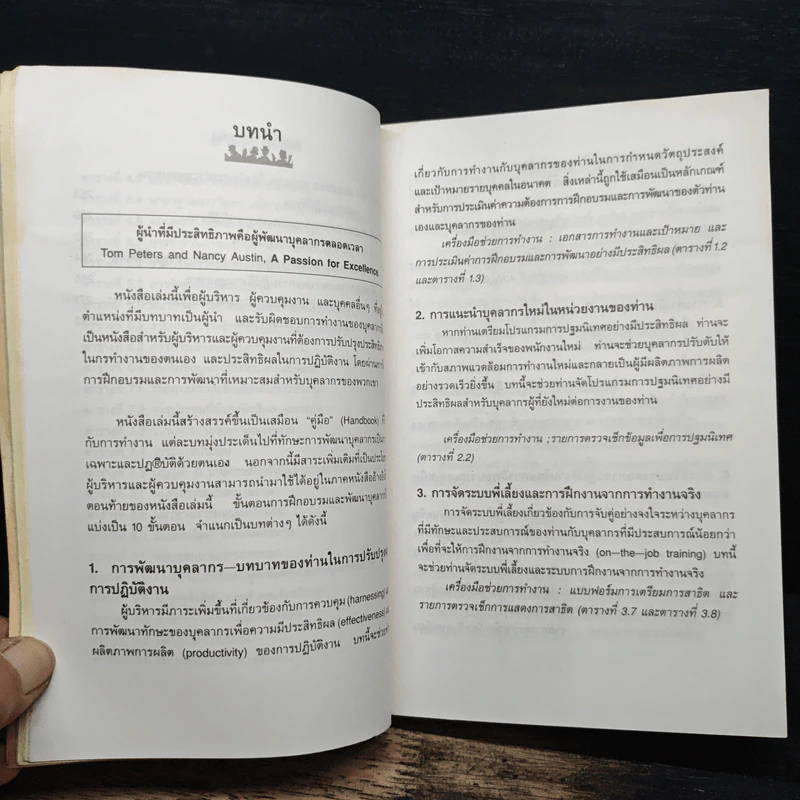 บทนำ
ผู้นำที่มีประสิทธิภาพคือผู้พัฒนาบุคลากรตลอดเวลา
Tom Peters and Nancy Austin, A Passion for Excellence.
หนังสือเล่มนี้เพื่อผู้บริหาร ผู้ควบคุมงาน และบุคคลอื่นๆ
ตำแหน่งที่มีบทบาทเป็นผู้นำ และรับผิดชอบการทำงานของบุคลากร
เป็นหนังสือสำหรับผู้บริหารและผู้ควบคุมงานที่ต้องการปรับปรุงประสิทธิ
ในกรทำงานของตนเอง และประสิทธิผลในการปฏิบัติงาน โดยผ่าน
การฝึกอบรมและการพัฒนาที่เหมาะสมสำหรับบุคลากรของพวกเขา
หนังสือเล่มนี้สร้างสรรค์ขึ้นเป็นเสมือน "คู่มือ" (Handbook)
กับการทำงาน แต่ละบทมุ่งประเด็นไปที่ทักษะการพัฒนาบุคลากรเป็น
เฉพาะและปฏ®บัติด้วยตนเอง นอกจากนี้มีสาระเพิ่มเติมที่เป็นประโย
ผู้บริหารและผู้ควบคุมงานสามารถนำมาใช้ได้อยู่ในภาคหนังสืออ้างอิง
ตอนท้ายของหนังสือเล่มนี้ ขั้นตอนการฝึกอบรมและพัฒนาบุคลากร
แบ่งเป็น 10 ขั้นตอน จำแนกเป็นบทต่างๆ ได้ดังนี้
1. การพัฒนาบุคลากร—บทบาทของท่านในการปรับปรุง
การปฏิบัติงาน
ผู้บริหารมีภาระเพิ่มขึ้นที่เกี่ยวข้องกับการควบคุม (harnessing)
การพัฒนาทักษะของบุคลากรเพื่อความมีประสิทธิผล (effectiveness)
ผลิตภาพการผลิต (productivity) ของการปฏิบัติงาน บทนี้จะช่วย
เกี่ยวกับการทำงานกับบุคลากรของท่านในการกำหนดวัตถุประสงค์
และเป้าหมายรายบุคคลในอนาคต สิ่งเหล่านี้ถูกใช้เสมือนเป็นหลักเกณฑ์
สำหรับการประเมินค่าความต้องการการฝึกอบรมและการพัฒนาของตัวท่าน
เองและบุคลากรของท่าน
เครื่องมือช่วยการทำงาน : เอกสารการทำงานและเป้าหมาย และ
การประเมินค่าการฝึกอบรมและการพัฒนาอย่างมีประสิทธิผล (ตารางที่ 1.2
และตารางที่ 1.3)
2. การแนะนำบุคลากรใหม่ในหน่วยงานของท่าน
หากท่านเตรียมโปรแกรมการปฐมนิเทศอย่างมีประสิทธิผล ท่านจะ
เพิ่มโอกาสความสำเร็จของพนักงานใหม่ ท่านจะช่วยบุคลากรปรับตัวให้
เข้ากับสภาพแวดล้อมการทำงานใหม่และกลายเป็นผู้มีผลิตภาพการผลิต
อย่างรวดเร็วยิ่งขึ้น บทนี้จะช่วยท่านจัดโปรแกรมการปฐมนิเทศอย่างมี
ประสิทธิผลสำหรับบุคลากรผู้ที่ยังใหม่ต่อการงานของท่าน
เครื่องมือช่วยการทำงาน ;รายการตรวจเช็กข้อมูลเพื่อการปฐมนิเทศ
(ตารางที่ 2.2)
3. การจัดระบบพี่เลี้ยงและการฝึกงานจากการทำงานจริง
การจัดระบบพี่เลี้ยงเกี่ยวข้องกับการจับคู่อย่างจงใจระหว่างบุคลากร
ที่มีทักษะและประสบการณ์ของท่านกับบุคลากรที่มีประสบการณ์น้อยกว่า
เพื่อที่จะให้การฝึกงานจากการทำงานจริง (on—the—job training) บทนี้
จะช่วยท่านจัดระบบพี่เลี้ยงและระบบการฝึกงานจากการทำงานจริง
เครื่องมือช่วยการทำงาน : แบบฟอร์มการเตรียมการสาธิต และ
รายการตรวจเช็กการแสดงการสาธิต (ตารางที่ 3.7 และตารางที่ 3.8)